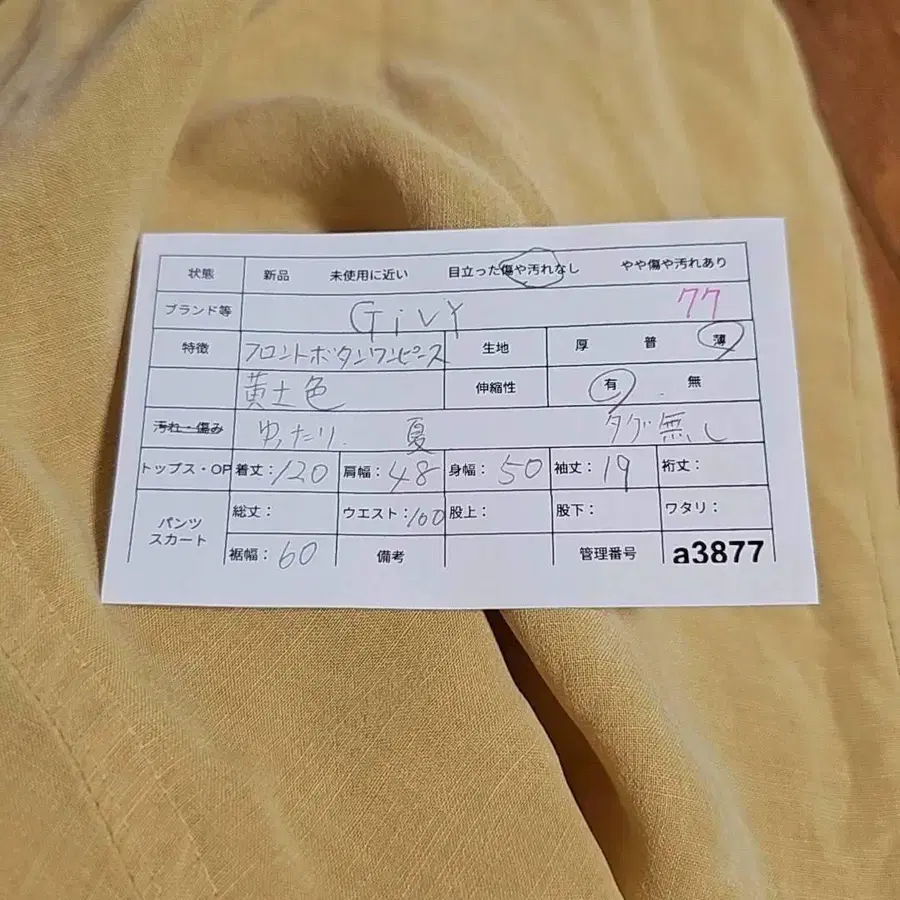 状態 新品 未使用に近い 目立った傷や汚れなし やや傷や汚れあり
ブランド等 GiVY 77
特徴 フロントボタンワンピース 生地 厚 普 薄
黄土色 伸縮性 有 無
汚れ・傷み ゆったり. 夏 タグ無し
トップス・OP 着丈:120 肩幅:48 身幅:50 袖丈:19 裄丈:
パンツ スカート 総丈: ウエスト:100 股上: 股下: ワタリ:
裾幅:60 備考 管理番号 a3877